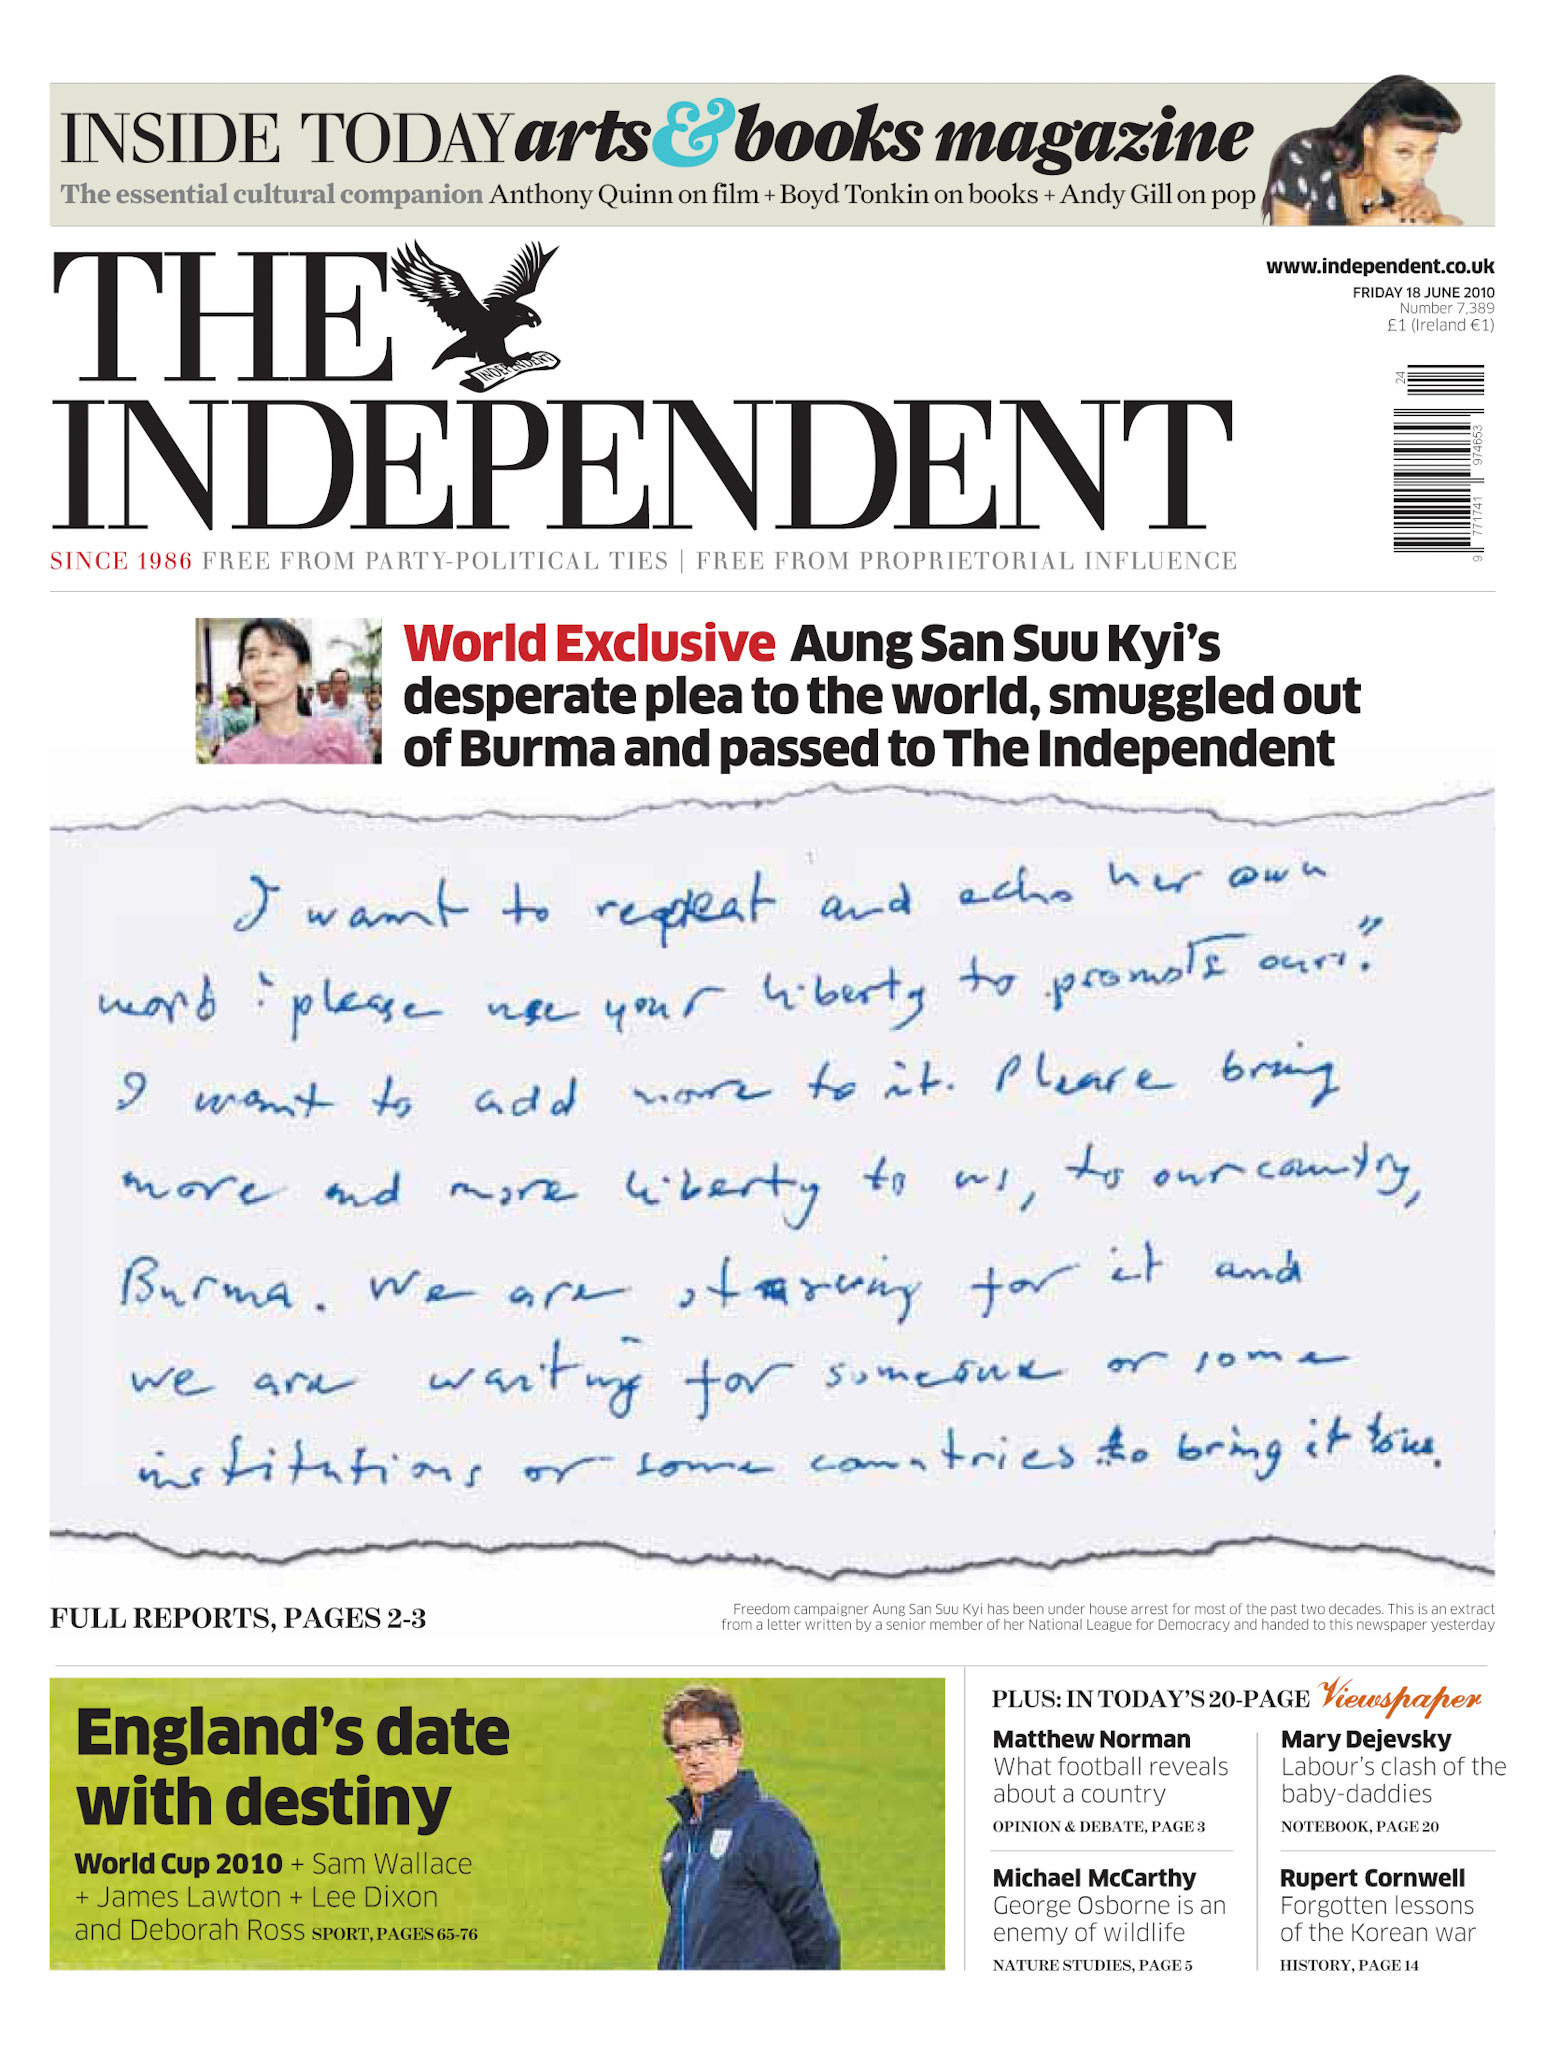 INSIDE TODAY arts & books magazine
The essential cultural companion Anthony Quinn on film + Boyd Tonkin on books + Andy Gill on pop
THE
INDEPENDENT
INDEPENDENT
SINCE 1986 FREE FROM PARTY-POLITICAL TIES | FREE FROM PROPRIETORIAL INFLUENCE
www.independent.co.uk
FRIDAY 18 JUNE 2010
Number 7,389
£1 (Ireland €1)
24
9 771741 974653
World Exclusive Aung San Suu Kyi's
desperate plea to the world, smuggled out
of Burma and passed to The Independent
I want to repeat and echo her own
word: "please use your liberty to promote ours."
I want to add more to it. Please bring
more and more liberty to us, to our country,
Burma. We are starving for it and
we are waiting for someone or some
institutions or some countries to bring it to us.
FULL REPORTS, PAGES 2-3
Freedom campaigner Aung San Suu Kyi has been under house arrest for most of the past two decades. This is an extract
from a letter written by a senior member of her National League for Democracy and handed to this newspaper yesterday
England's date
with destiny
World Cup 2010 + Sam Wallace
+ James Lawton + Lee Dixon
and Deborah Ross SPORT, PAGES 65-76
PLUS: IN TODAY'S 20-PAGE Viewspaper
Matthew Norman
What football reveals
about a country
OPINION & DEBATE, PAGE 3
Mary Dejevsky
Labour's clash of the
baby-daddies
NOTEBOOK, PAGE 20
Michael McCarthy
George Osborne is an
enemy of wildlife
NATURE STUDIES, PAGE 5
Rupert Cornwell
Forgotten lessons
of the Korean war
HISTORY, PAGE 14